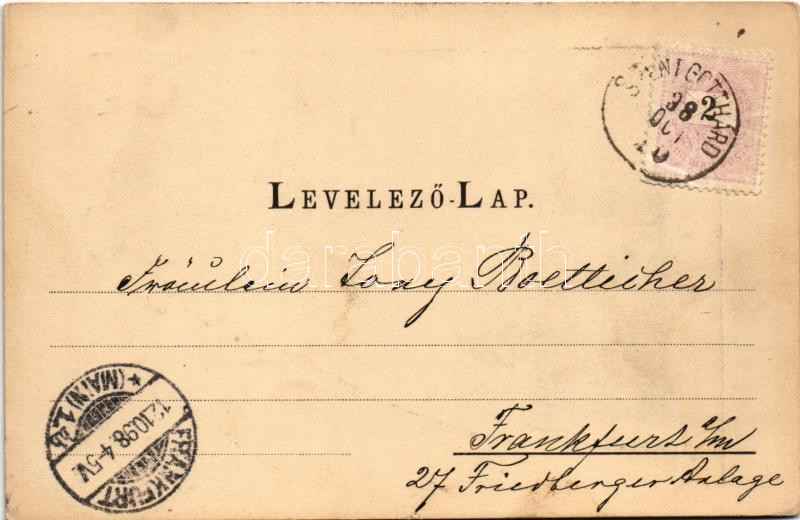 SZENTGOTTHÁRD
98
OCT
10
2
LEVELEZŐ-LAP.
darabanth
Fräulein Tony Boetticher
Frankfurt a/m
27 Friedberger Anlage
FRANKFURT
12.10.98.4-5V.
*(MAIN)1.